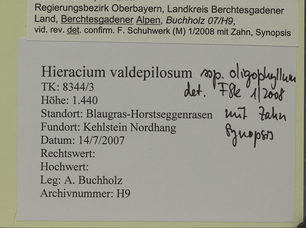 Regierungsbezirk Oberbayern, Landkreis Berchtesgadener
Land, Berchtesgadener Alpen, Buchholz 07/H9,
vid. rev. det. confirm. F. Schuhwerk (M) 1/2008 mit Zahn, Synopsis
Hieracium valdepilosum ssp. oligophyllum
TK: 8344/3 det. FSk 1/2008
Höhe: 1.440
Standort: Blaugras-Horstseggenrasen mit Zahn
Fundort: Kehlstein Nordhang Synopsis
Datum: 14/7/2007
Rechtswert:
Hochwert:
Leg: A. Buchholz
Archivnummer: H9